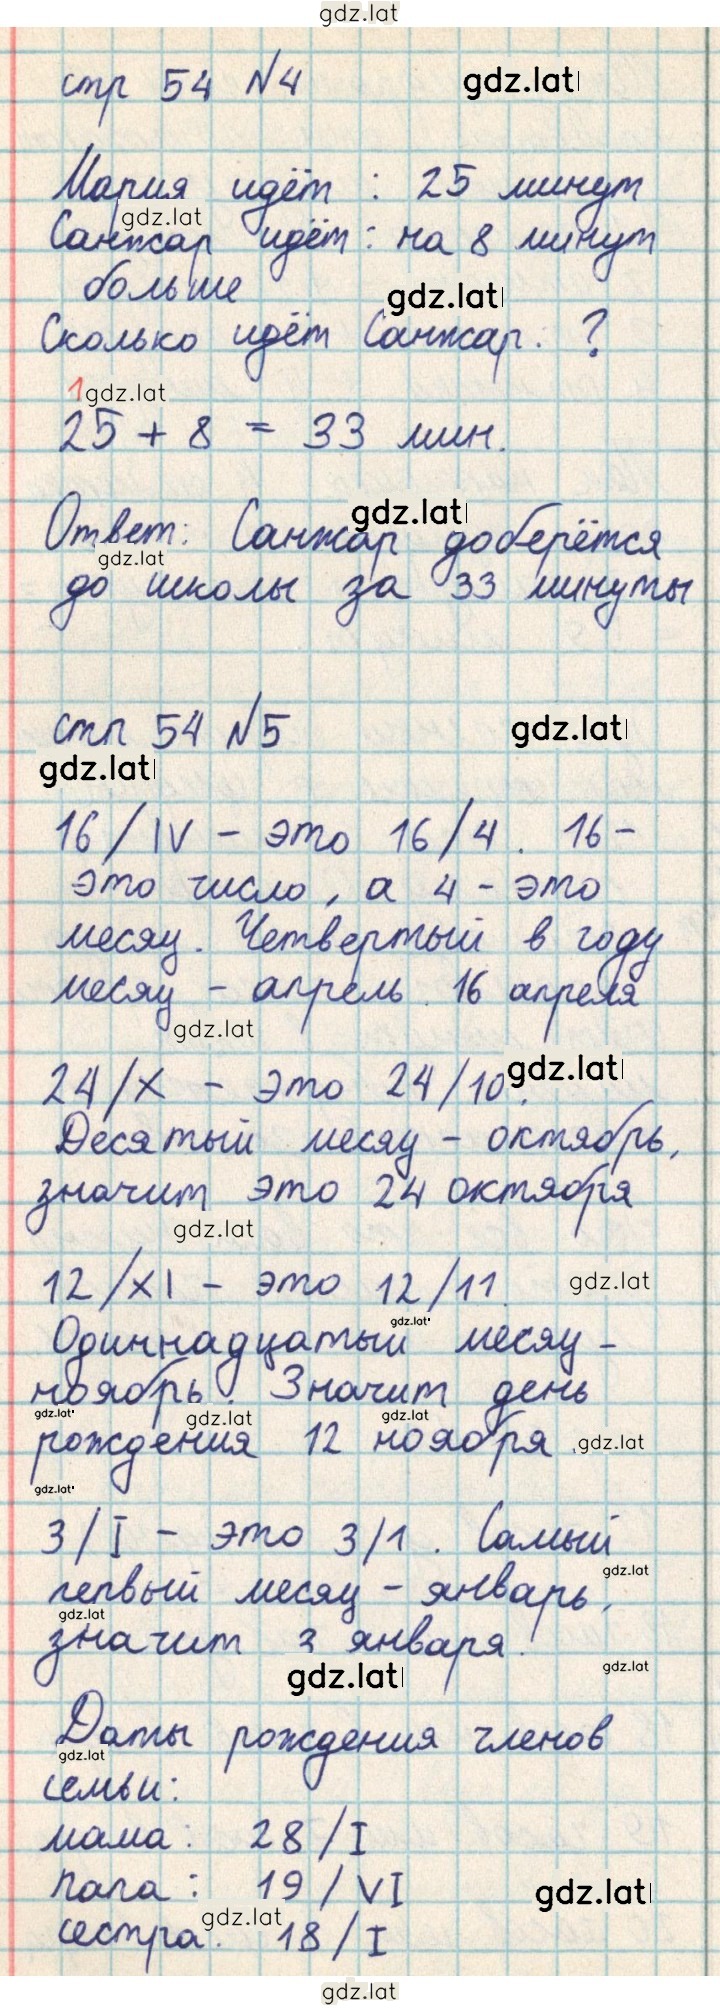 gdz.lat
стр 54 №4
gdz.lat
Мария идёт : 25 минут
gdz.lat
Санжар идёт : на 8 минут
больше
gdz.lat
Сколько идёт Санжар : ?
1 gdz.lat
25 + 8 = 33 мин.
gdz.lat
Ответ: Санжар доберётся
gdz.lat
до школы за 33 минуты
стп 54 №5
gdz.lat
gdz.lat
16/IV – это 16/4. 16 –
это число, а 4 – это
месяц. Четвертый в году
месяц – апрель. 16 апреля
gdz.lat
24/X – это 24/10.
gdz.lat
Десятый месяц – октябрь,
значит это 24 октября
gdz.lat
12/XI – это 12/11
gdz.lat
gdz.lat
Одиннадцатый месяц –
ноябрь. Значит день
gdz.lat gdz.lat gdz.lat
рождения 12 ноября
gdz.lat
gdz.lat
3/I – это 3/1. Самый
gdz.lat
первый месяц – январь,
gdz.lat
значит 3 января.
gdz.lat
gdz.lat
Даты рождения членов
gdz.lat
семьи:
мама: 28/I
папа: 19/VI
gdz.lat
gdz.lat
сестра: 18/I
gdz.lat